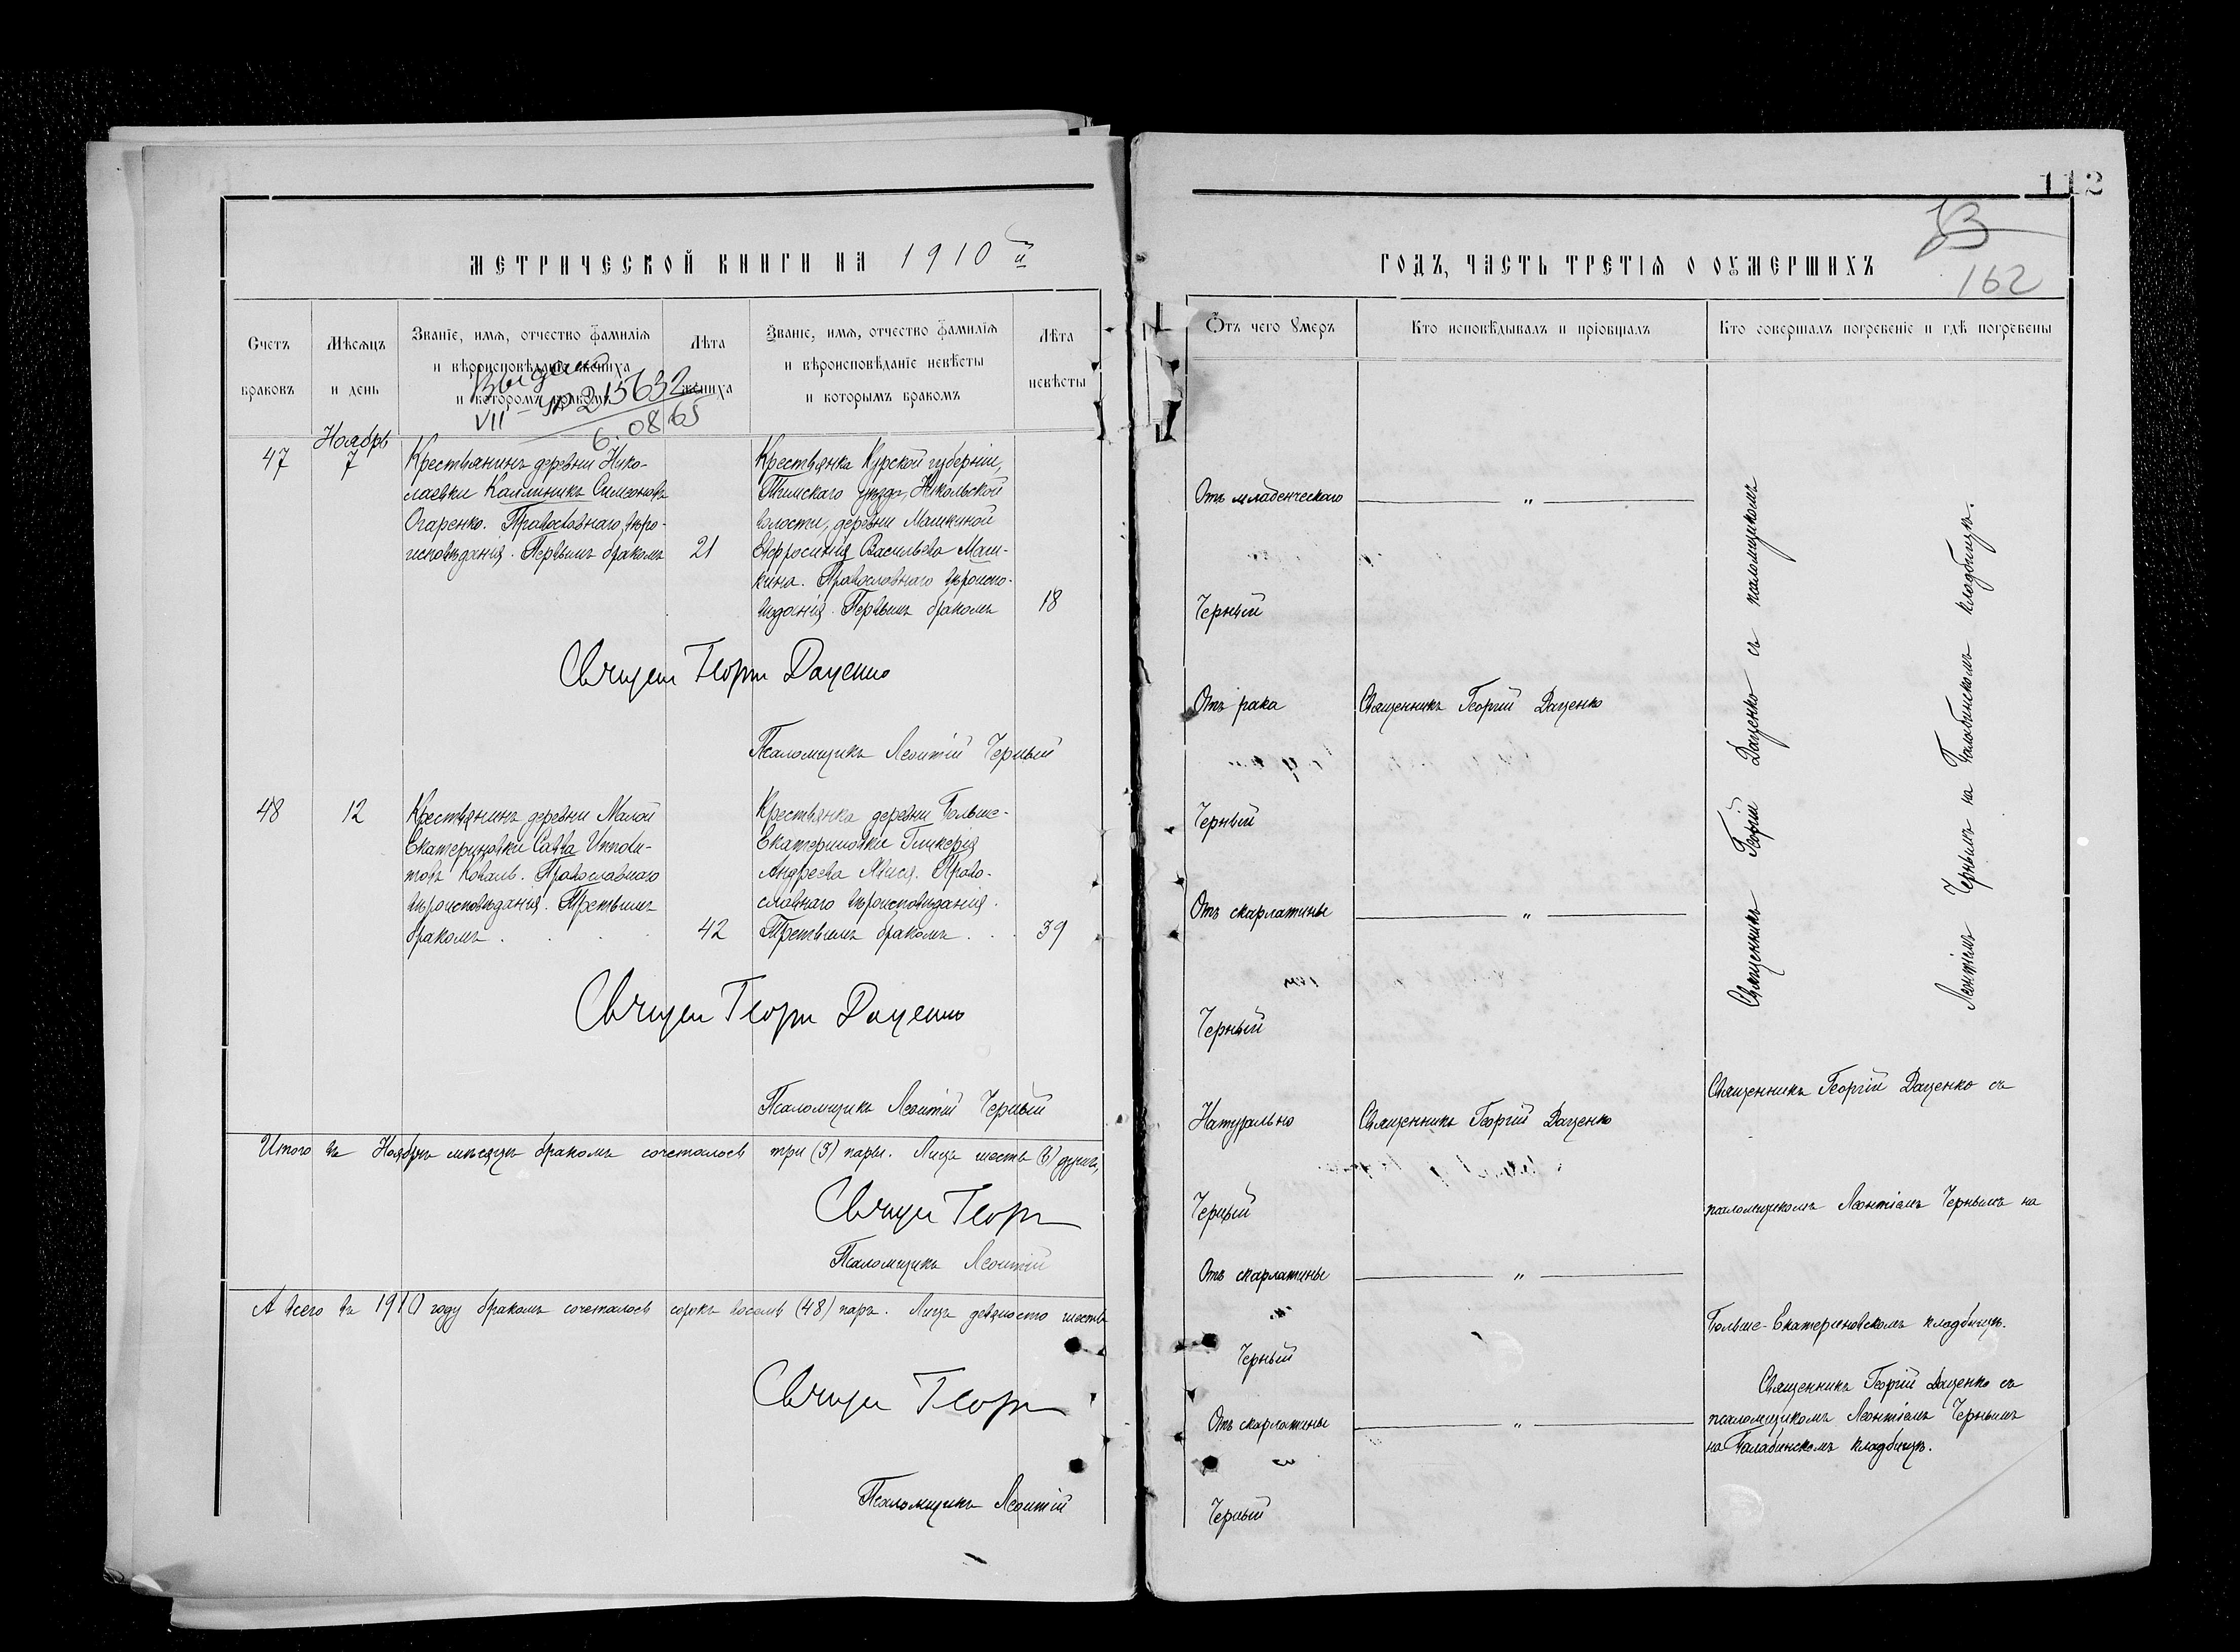 МЕТРИЧЕСКОЙ КНИГИ НА 1910 й
Счетъ браковъ
Мѣсяцъ и день
Званіе, имя, отчество фамилія
и вѣроисповѣданіе жениха
и которомъ бракомъ
Лѣта жениха
Званіе, имя, отчество фамилія
и вѣроисповѣданіе невѣсты
и которымъ бракомъ
Лѣта невѣсты
VII 215632
6.08 65
Ноябрь
47
7
Крестьянинъ деревни Нико-
лаевки Каллиникъ Симеоновъ
Огаренко. Православнаго вѣро-
исповѣданія. Первымъ бракомъ
21
Крестьянка Курской губерніи,
Тимскаго уѣзда, Никольской
волости, деревни Машкиной
Евфросинія Васильева Маш-
кина. Православнаго вѣроиспо-
вѣданія. Первымъ бракомъ
18
Священ Георгій Даценко
Псаломщикъ Леонтій Черный
48
12
Крестьянинъ деревни Малой
Екатериновки Савва Ипполи-
товъ Коваль. Православнаго
вѣроисповѣданія. Третьимъ
бракомъ . . . .
42
Крестьянка деревни Больше-
Екатериновки Гликерія
Андреева Право-
славнаго вѣроисповѣданія.
Третьимъ бракомъ . . .
39
Священ Георгій Даценко
Псаломщикъ Леонтій Черный
Итого въ Ноябрѣ мѣсяцѣ бракомъ сочеталось три (3) пары. Лицъ шесть (6) душъ,
Священ Георг
Псаломщикъ Леонтій
А всего въ 1910 году бракомъ сочеталось сорокъ восемь (48) паръ. Лицъ девяносто шесть
Священ Георг
Псаломщикъ Леонтій
112
162
ГОДЪ, ЧАСТЬ ТРЕТІЯ О ОУМЕРШИХЪ
Отъ чего умеръ
Кто исповѣдывалъ и пріобщалъ
Кто совершалъ погребеніе и гдѣ погребены
Отъ младенческаго
"
Черный
Отъ рака
Священникъ Георгій Даценко
Черный
Отъ скарлатины
"
Черный
Священникъ Георгій Даценко съ псаломщикомъ
Леонтіемъ Чернымъ на Балабинскомъ кладбищѣ.
Натурально
Священникъ Георгій Даценко
Священникъ Георгій Даценко съ
Черный
псаломщикомъ Леонтіемъ Чернымъ на
Отъ скарлатины
"
Черный
Больше-Екатериновскомъ кладбищѣ.
Отъ скарлатины
"
Черный
Священникъ Георгій Даценко съ
псаломщикомъ Леонтіемъ Чернымъ
на Балабинскомъ кладбищѣ.